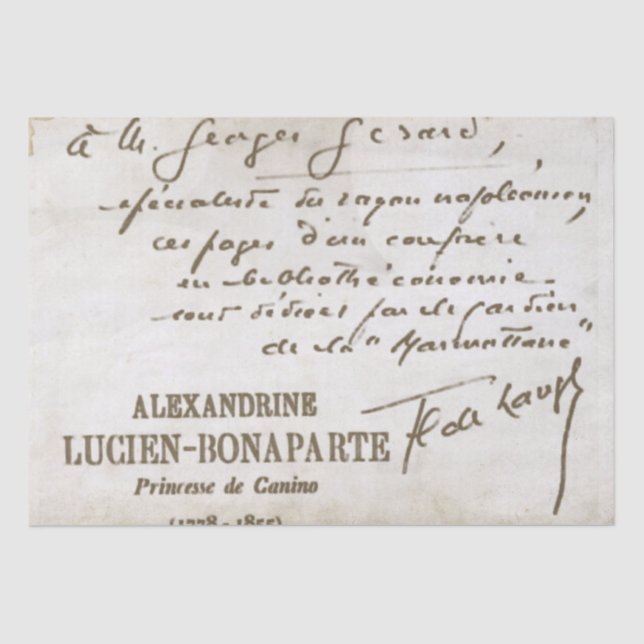 à M. Georges Gérard,
spécialiste du rayon napoléonien,
ces pages d'un confrère
en bibliothéconomie
sont dédiées par le gardien
de la "Marmottane"
ALEXANDRINE
LUCIEN-BONAPARTE
Princesse de Canino
(1778-1855)